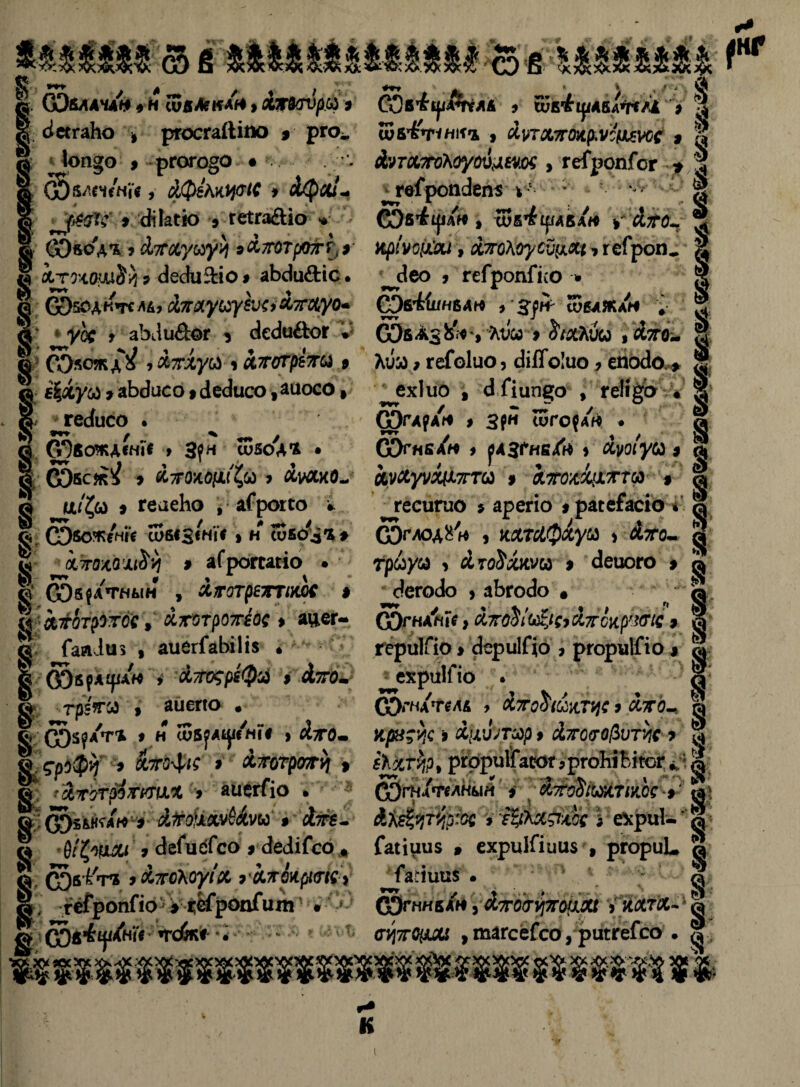 Ѿ в Ѿ в
рнг
Ѿвлачаю, и ѡвлекаю, ἀποσύρω,
detraho, procraſtino, pro-
longo, prorogo.
Ѿвлеченїе, ἀφέλκησις,
dilatio, retractio.
Ѿводъ, ἀπαγωγὴ, ἀποτροπὴ,
ἀποκομιδὴ, deductio, abductio.
Ѿводитель, ἀπαγωγεὺς, ἀπαγο-
γὸς, abductor, deductor.
Ѿвождꙋ, ἀπάγω, ἀποτρέπω,
ἐξάγω, abduco, deduco, auoco,
reduco.
Ѿвожденїе, зри ѿводъ.
Ѿвожꙋ, ἀποκομίζω, ἀνακο-
μίζω, reueho, aſporto.
Ѿвоженїе ѿвезенїе, и ѿвозъ,
ἀποκομιδὴ, aſportatio.
Ѿвратный, ἀποτρεπτικὸς,
ἀπότροπος, ἀποτροπέος, auer-
ſandus, auerſabilis.
Ѿвращаю, ἀποςρέφω, ἀπο-
τρέπω, auerto.
Ѿвратъ, и ѿвращенїе, ἀπο-
ςροφὴ, ἀποτροπὴ,
auerſio.
Ѿвыкаю, ἀπομανθάνω, ἀπε-
θίζομαι, defueſco, dediſco.
Ѿвѣтъ, ἀπολογία, ἀπόκρισις,
reſponſio, reſponſum.
Ѿвѣщанїе тоже.
Ѿвѣщатель, ѿвѣщаватель,
ѿвѣтникъ, ἀνταποκρινόμενος,
ἀνταπολογούμενος, reſponſor,
reſpondens.
Ѿвѣщаю, ѿвѣщаваю, ἀπο-
κρίνομαι, ἀπολογοῦμαι, reſpon-
deo, reſponſito.
Ѿвѣшиваю, зри ѿвлжаю.
Ѿвѧзꙋю, λύω, διαλύω, ἀπο-
λύω, reſoluo, diſſoluo, enodo,
exluo, diſiungo, religo.
Ѿгараю, зри ѿгораю.
Ѿгнбаю, разгибаю, ἀνοίγω,
ἀναγνάμπτω, ἀποκάμπτω,
recuruo, aperio, patefacio.
Ѿглодꙋю, καταφάγω, ἀπο-
τρώγω, ἀποδάκνω, deuoro,
derodo, abrodo.
Ѿгнанїе, ἀποδίωξις, ἀπόκρουσις,
repulſio, depulſio, propulſio,
expulſio.
Ѿгнатель, ἀποδιώκτης, ἀπο-
ἀμύντωρ, ἀποσοβυτὴς,
propulſator, prohibitor.
Ѿгнательный, ἀποδιωκτικὸς,
ἀλεξητήριος, ἐξιλαςικὸς, expul-
ſatiuus, expulſiuus, propul-
ſatiuus.
Ѿгниваю, ἀποσήπομαι, κατα-
σήπομαι, marceſco, putreſco.
К